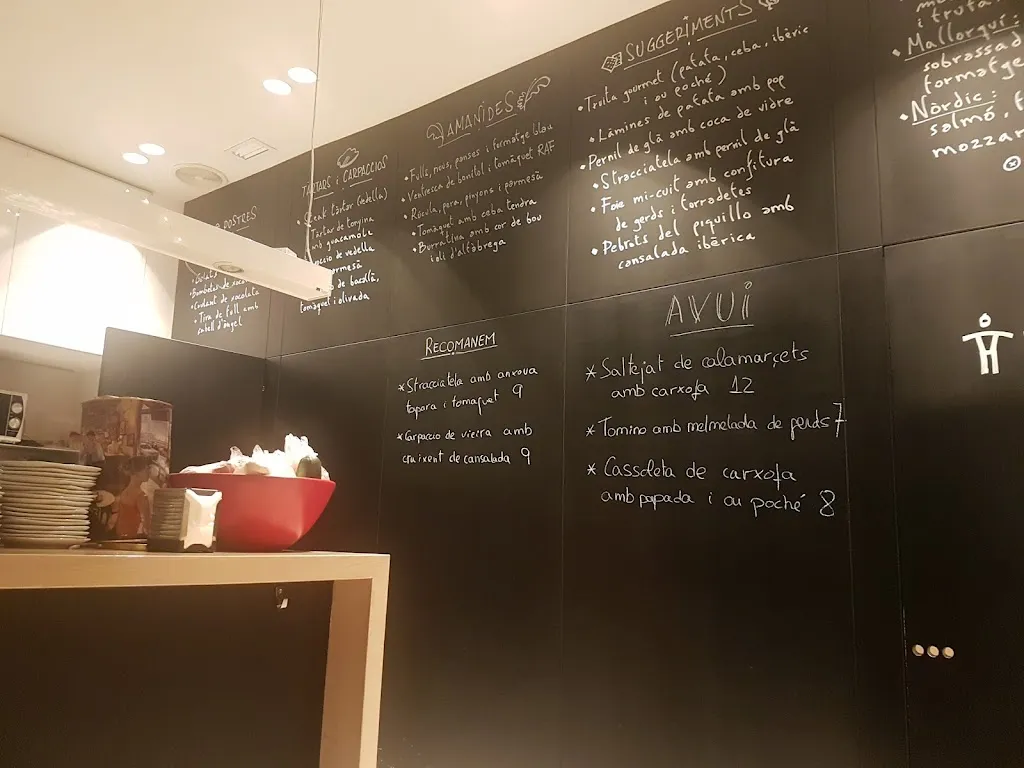 POSTRES
Gelats
Bombetes de xoco
Coulant de xocolata
Tira de full amb
cabell d'àngel
TÀRTARS i CARPACCIOS
Steak tàrtar (vedella)
Tàrtar de tonyina
amb guacamole
de vedella
parmesà
de basilic,
tomàquet i olivada
AMANIDES
• Fulls, nous, panses i formatge blau
• Ventresca de bonítol i tomàquet RAF
• Rúcula, pera, pinyons i parmesà
• Tomàquet amb ceba tendra
• Burratina amb cor de bou
i oli d'alfàbrega
SUGGERIMENTS
• Truita gourmet (patata, ceba, ibèric
i ou poché)
• Làmines de patata amb pop
• Pernil de glà amb coca de vidre
• Stracciatela amb pernil de glà
• Foie mi-cuit amb confitura
de gerds i torradetes
• Pebrots del piquillo amb
ensalada ibèrica
i truita
• Mallorquí:
sobrassad
formatge
• Nòrdic:
salmó, f
mozzar
RECOMANEM
* Stracciatela amb anxova
tapara i tomaquet 9
* Carpaccio de vieira amb
cruixent de cansalada 9
AVUI
* Saltejat de calamarçets
amb carxofa 12
* Tomino amb melmelada de gerds 7
* Cassoleta de carxofa
amb papada i ou poché 8